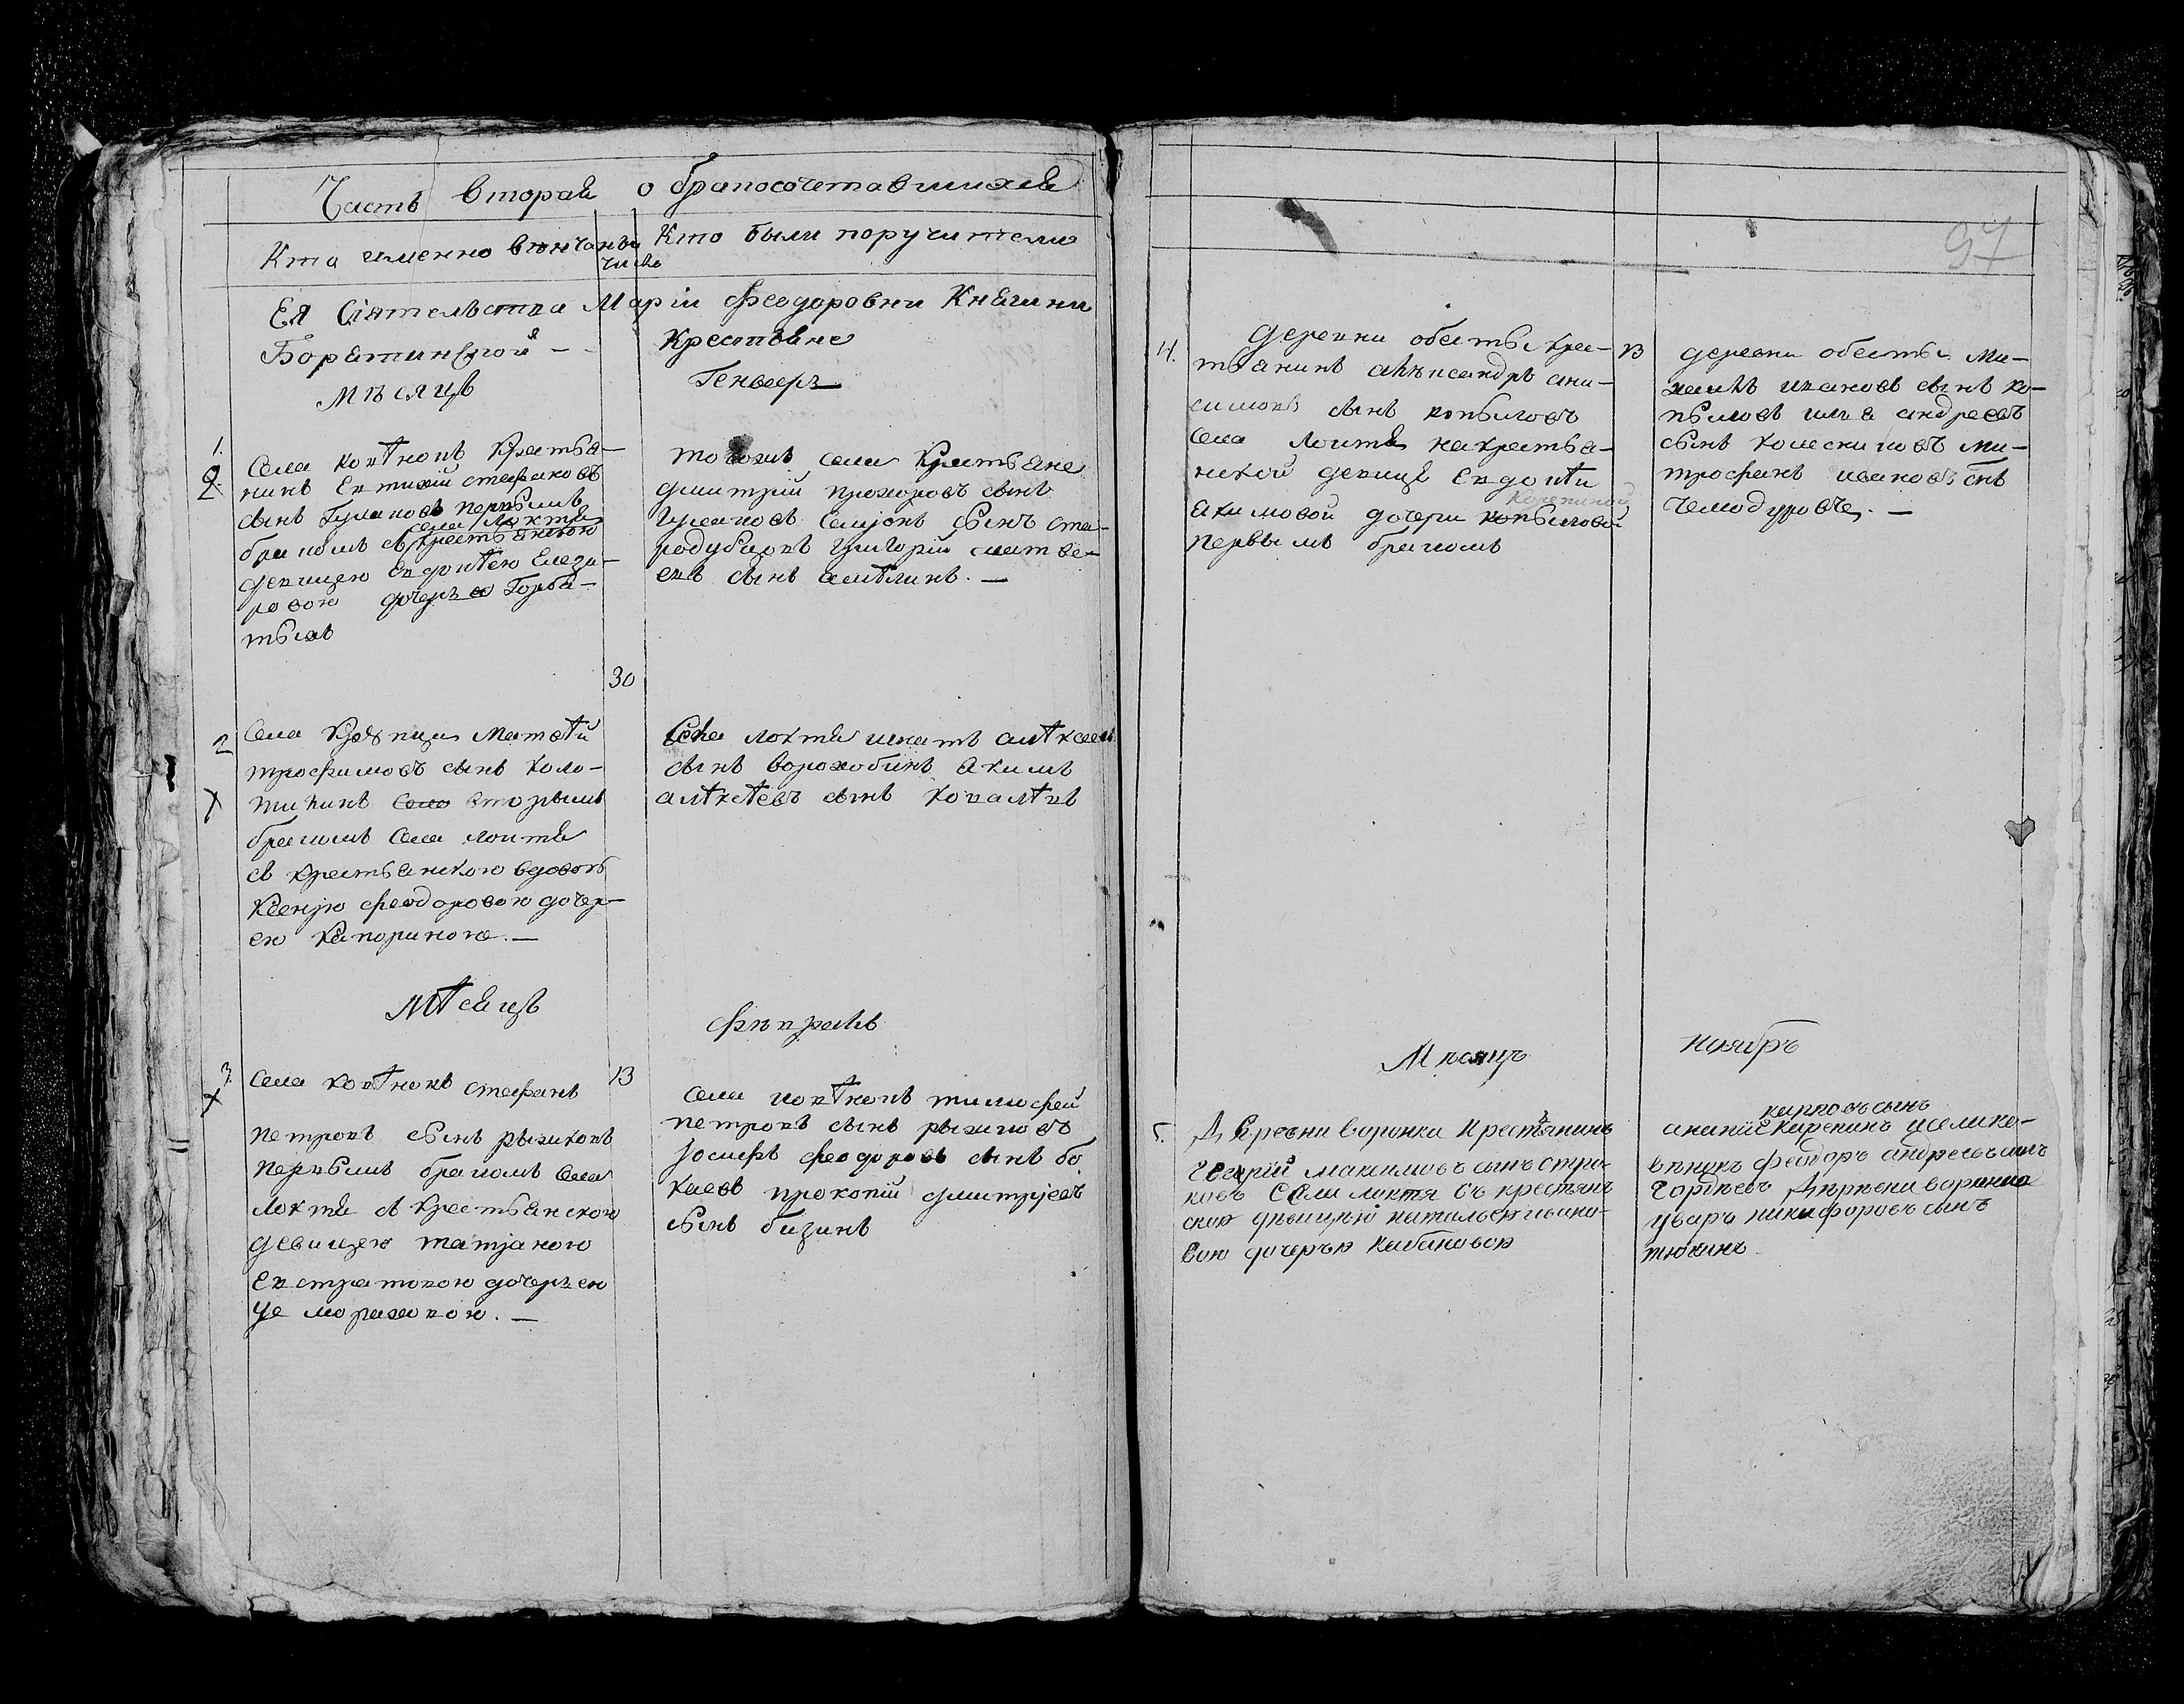 Часть вторая о бракосочетавшихся
Кто именно венчаны
число
Кто были поручители
Ея Сіятельства Маріи Феодоровни Княгини
Борятинской
Крестьяне
Мѣсяцъ
Генварь
1.
Села Коѣтновъ Крестья-
нинъ Евтихій стефановъ
сынъ Гулаковъ первымъ
села Локтя
бракомъ съ Крестьянскою
девицею Евдокѣею Елеза-
ровою дочерью Горба-
тыхъ
тогожъ села Крестьяне
дмитрій прохоровъ сынъ
Семіонъ сынъ ста-
родубцовъ григорій матве-
евъ сынъ амѣлинъ. —
30
2
Села Матвѣй
трофимовъ сынъ коло-
вторымъ
бракомъ Села локтя
съ крестьянскою вдовою
Ксеніею феодоровою дочер-
ею —
Села локтя игнатъ алѣксеевъ
сынъ ворожобинъ Акимъ
алѣксѣевъ сынъ ковалѣвъ
Мѣсяцъ
Февраль
3.
Села стефанъ
13
петровъ сынъ рыжковъ
первымъ бракомъ села
локтя съ крестьянскою
девицею татіаною
Евстратовою дочерею
Села тимофей
петровъ сынъ рыжковъ
Іосифъ феодоровъ сынъ бо
каевъ прокопій дмитріевъ
сынъ бизинъ
97
4.
деревни обесты крес-
тьянинъ алѣксандръ ани-
симовъ сынъ копыловъ
села локтя на крестьян-
ской девице Евдокѣи
Акимовой дочери копыловой
первымъ бракомъ
13
деревни обесты ми-
хаилъ ивановъ сынъ ко-
пыловъ илья андреевъ
сынъ колесниковъ ми-
трофанъ ивановъ снъ
чемодуровъ. —
Мѣсяцъ
ноябрь
5.
Деревни воронка крестьянинъ
Георгій максимовъ сынъ стро-
ковъ села локтя съ крестьян-
ской девицею натальею ивано-
вою дочерью кабановой
карповъ сынъ
феодоръ андреевъ сынъ
Гордѣевъ Деревни воронка
уваръ никифоровъ сынъ
тюкинъ